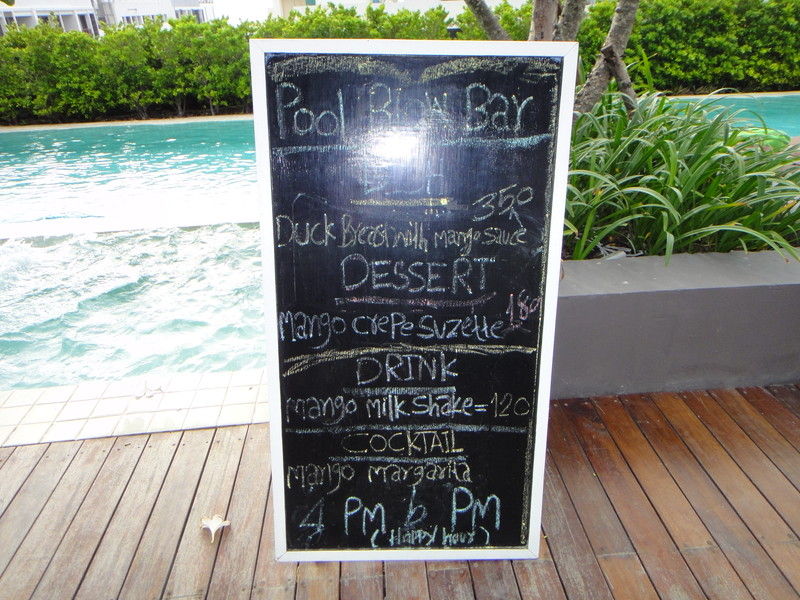 Pool Blow Bar
350
Duck Breast with mango sauce
DESSERT
180
mango crepe suzette
DRINK
mango milk shake=120
COCKTAIL
mango margarita
4 PM 6 PM
(Happy hour)